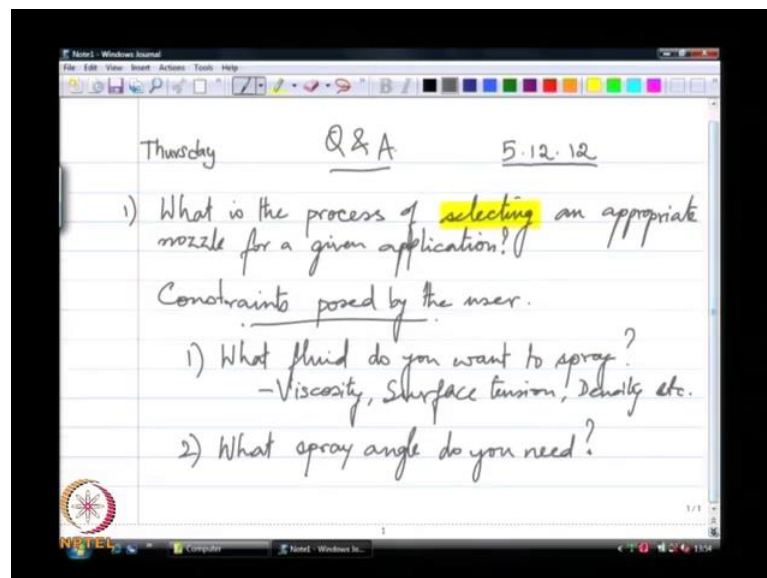 Note1 - Windows Journal
File Edit View Insert Actions Tools Help
Thursday Q & A 5.12.12
1) What is the process of selecting an appropriate
nozzle for a given application?
Constraints posed by the user.
1) What fluid do you want to spray?
- Viscosity, Surface tension, Density etc.
2) What spray angle do you need?
1/1
1
NPTEL
Computer
Note1 - Windows Jo...
13:54